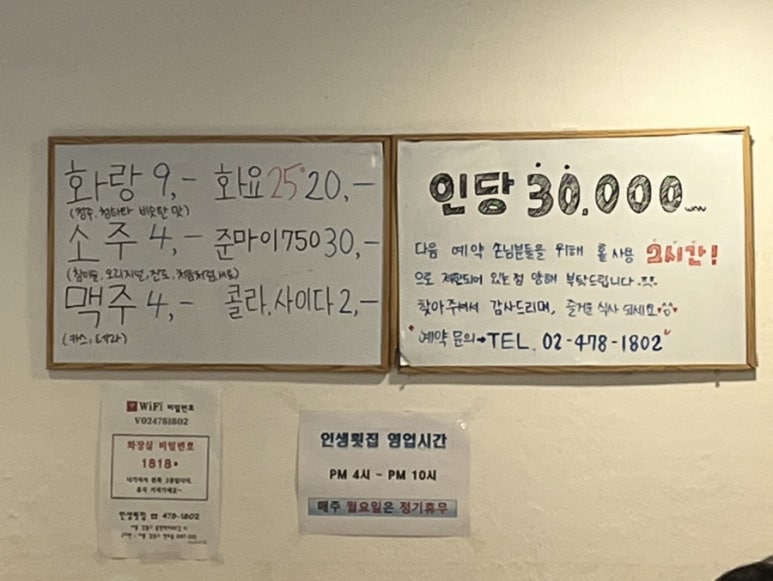 화랑 9,- 화요25°20,-
(청주, 청하와 비슷한 맛)
소주 4,- 준마이750 30,-
(참이슬, 오리지널, 진로, 처음처럼, 새로)
맥주 4,- 콜라,사이다 2,-
(카스, 테라)
인당 30,000
다음 예약 손님분들을 위해 홀 사용 2시간!
으로 제한되어 있는점 양해 부탁드립니다.
찾아주셔서 감사드리며, 즐거운 식사 되세요
예약 문의→TEL. 02-478-1802
WiFi 비밀번호
V024781802
화장실 비밀번호
1818*
인생횟집 ☎ 478-1802
인생횟집 영업시간
PM 4시 ~ PM 10시
매주 월요일은 정기휴무